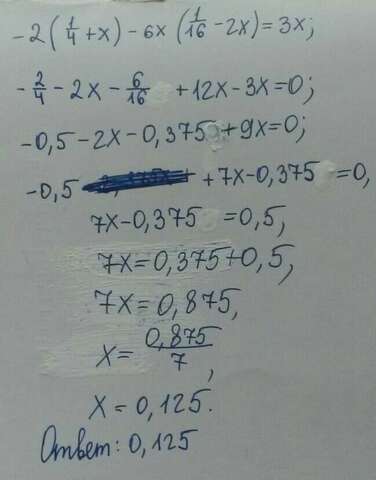 -2(1/4+x)-6x(1/16-2x)=3x;
-2/4-2x-6/16 +12x-3x=0;
-0,5-2x-0,375+9x=0;
-0,5 +7x-0,375=0,
7x-0,375=0,5,
7x=0,375+0,5,
7x=0,875,
x=0,875/7,
x=0,125.
Ответ: 0,125